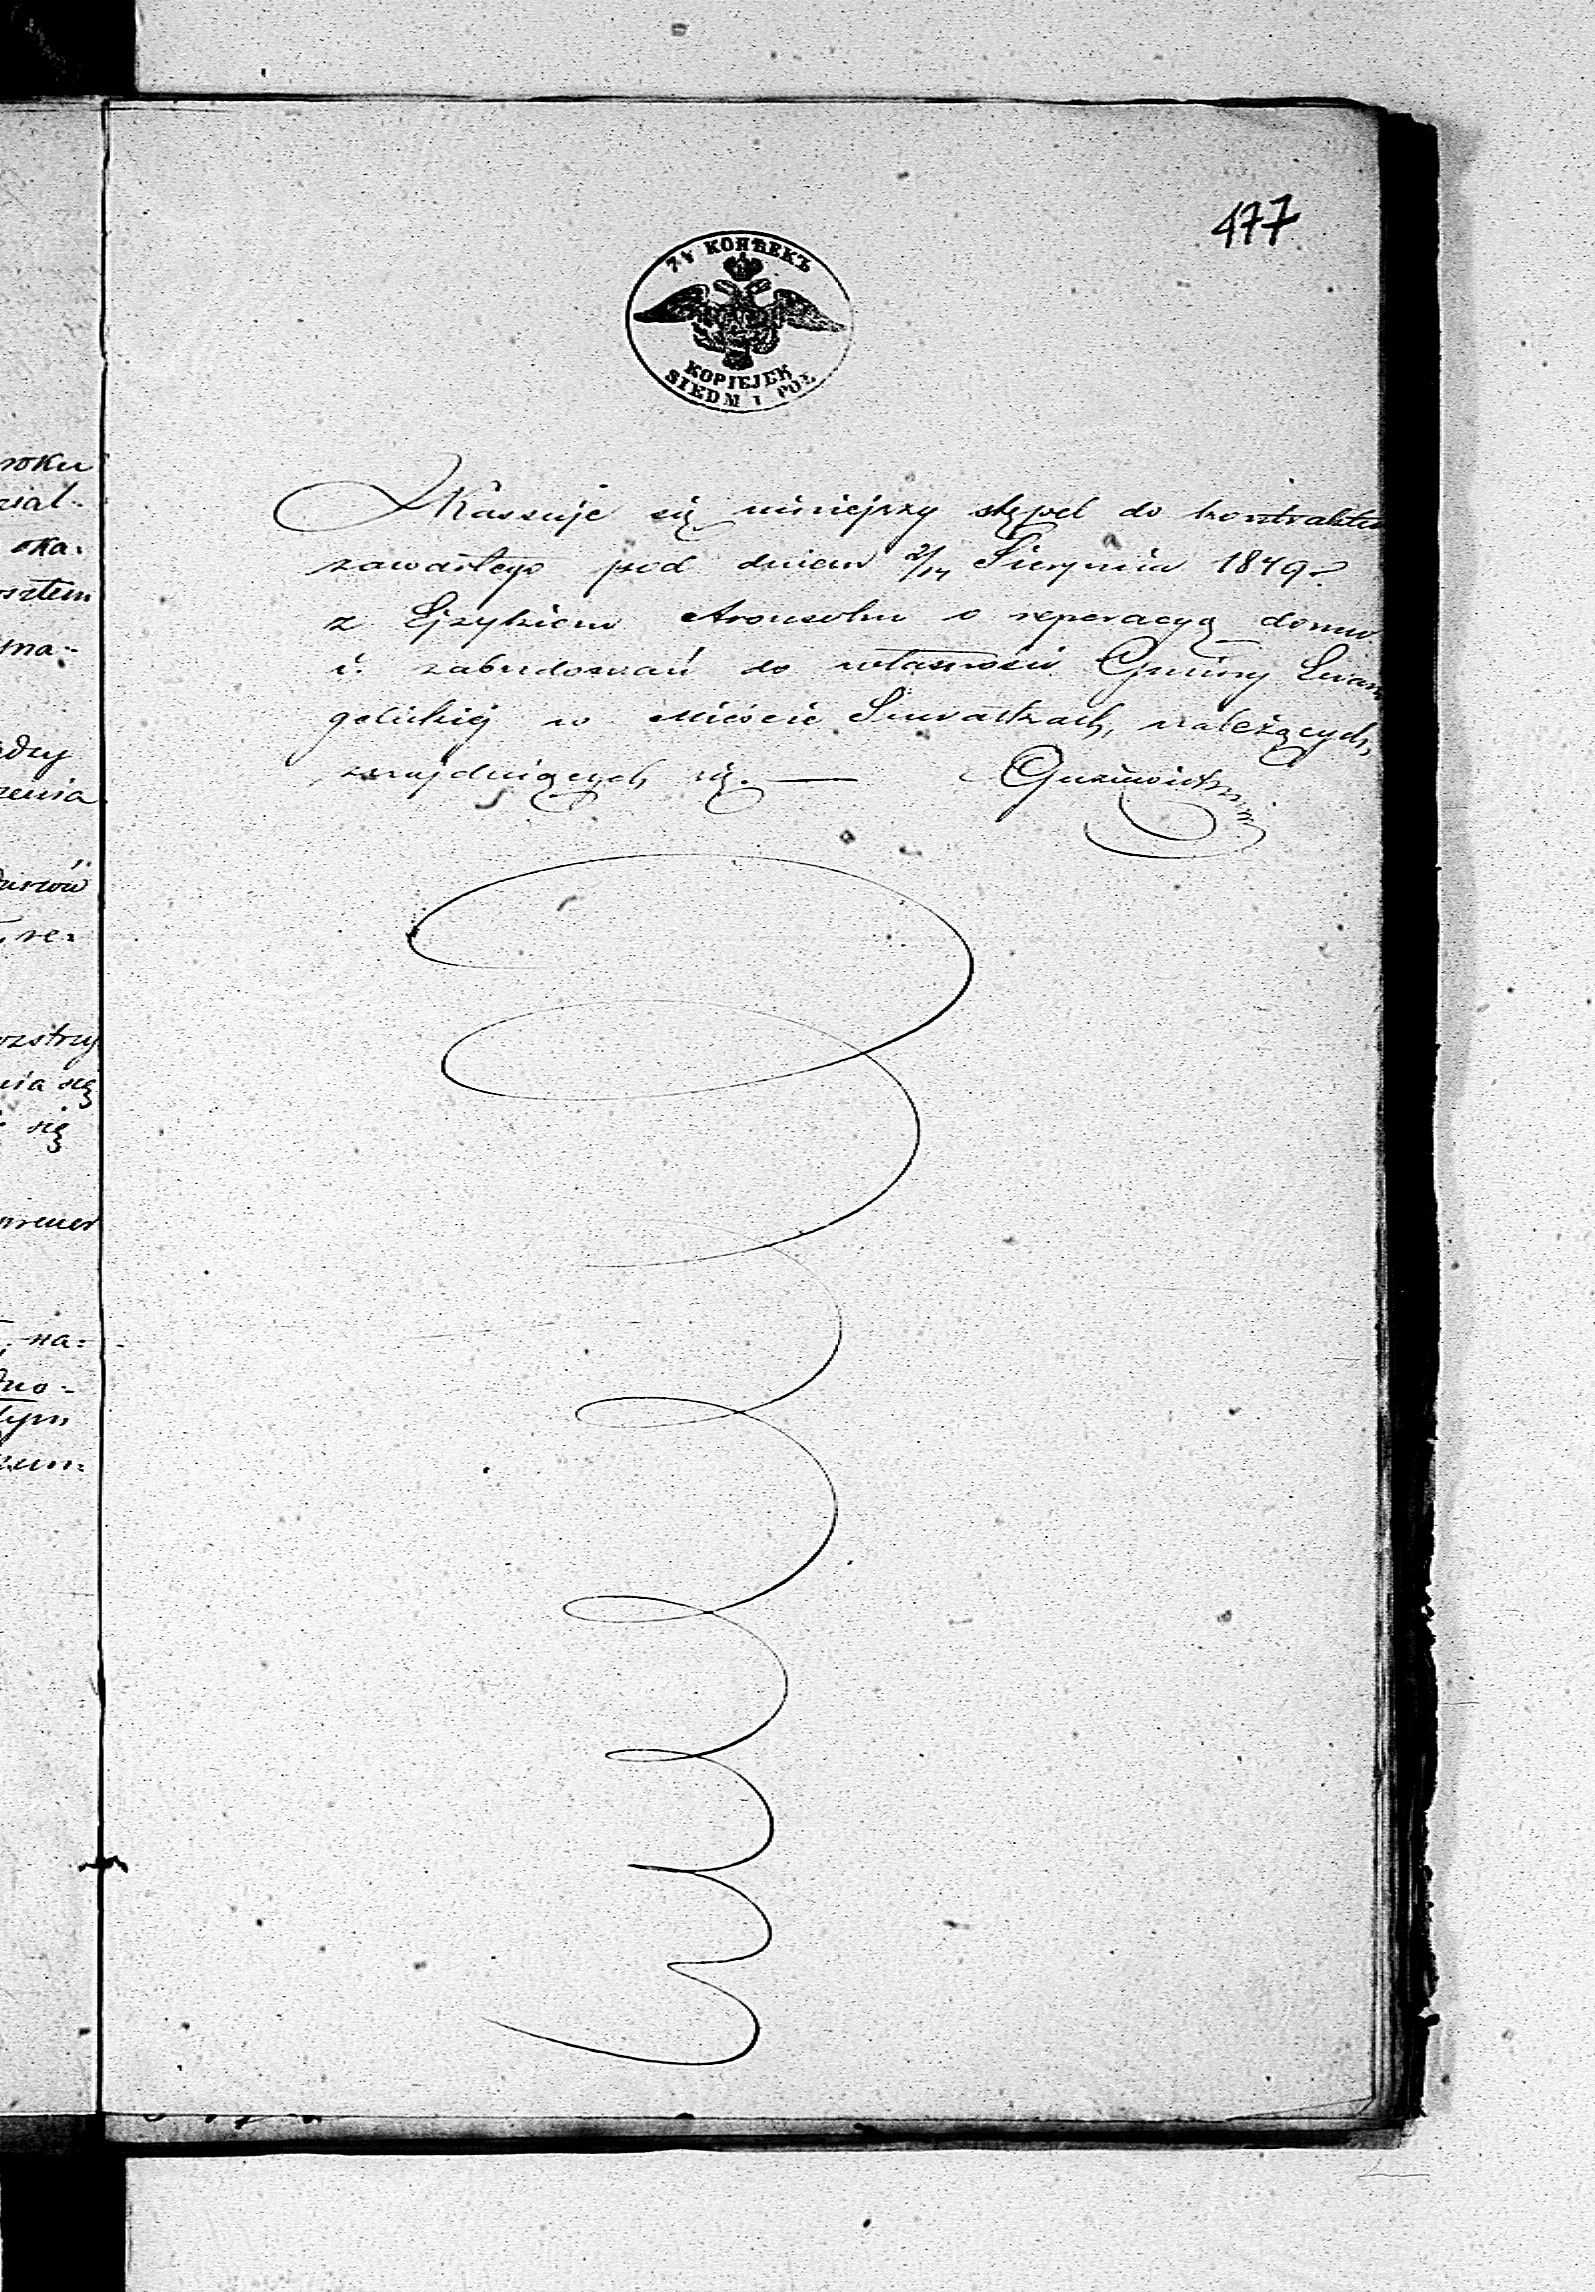 477
7½ КОПѢЕКЪ
KOPIEJEK
SIEDM I PÓŁ
Kassuje się niniejszy stępel do kontraktu
zawartego pod dniem 2/14 Sierpnia 1849 r
z Ejzykiem Aronsohn o reperacyą domu
i zabudowań do własności Gminy Ewan
gelickiej w Mieście Suwałkach, należących,
znajdujących się. —
roku
rial-
oka:
sztem
yma-
dzy
zenia
, re:
ozstrzy
nia się
się
na:
dno-
tym